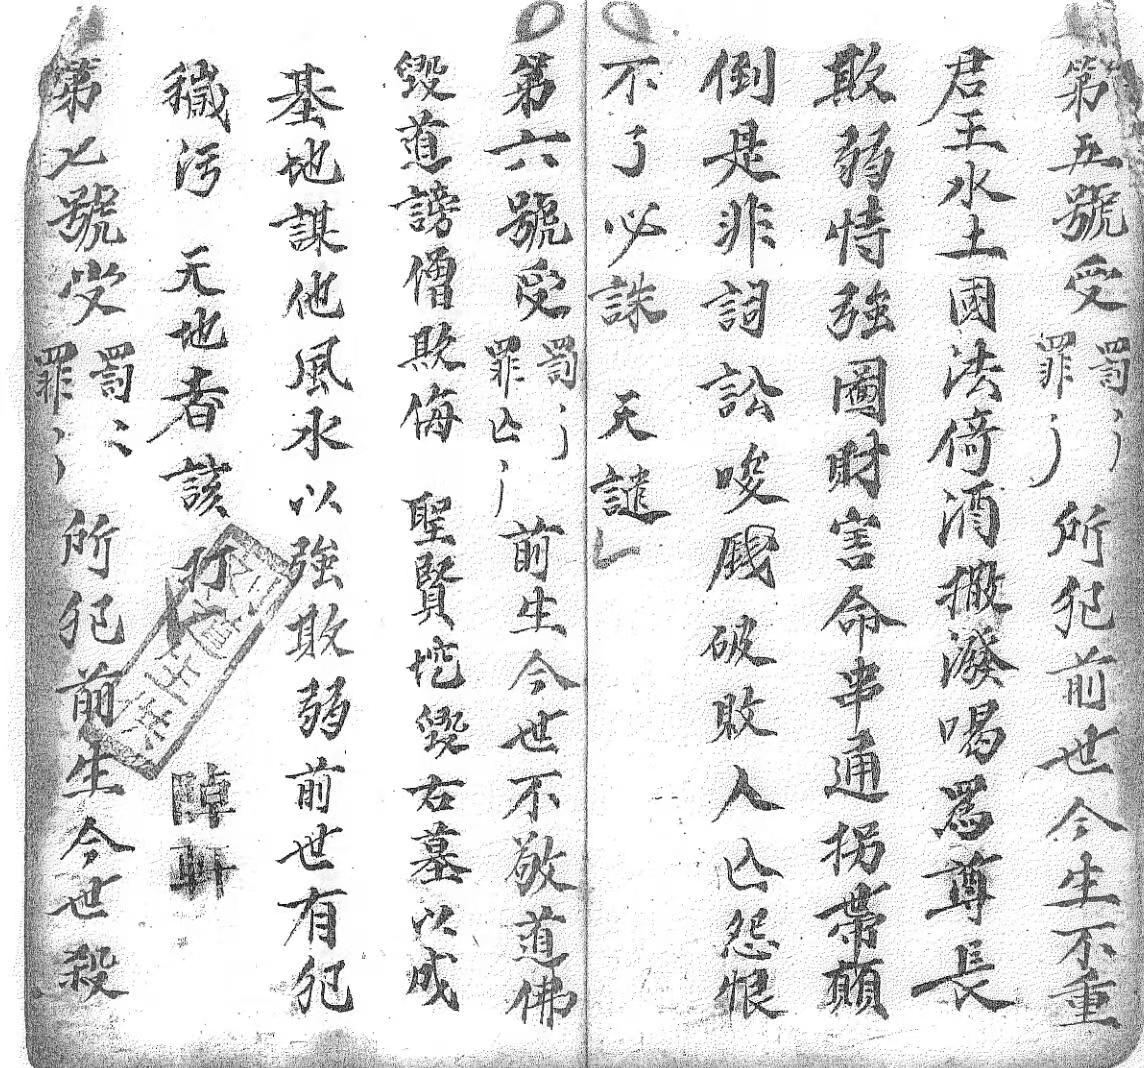 第五號受罰〻罪〻所犯前世今生不重
君王水土國法倚酒撒潑喝罵尊長
欺弱恃強圖財害命串通拐帶顛
倒是非詞訟唆 破敗人亡怨恨
不了必誅 天譴
第六號受罰〻罪亡〻前生今世不敬道佛
毀道謗僧欺侮 聖賢挖毀右墓以成
基地謀他風水以強欺弱前世有犯
穢污 天地者該 軒
第七號受罰〻罪〻所犯前生今世殺